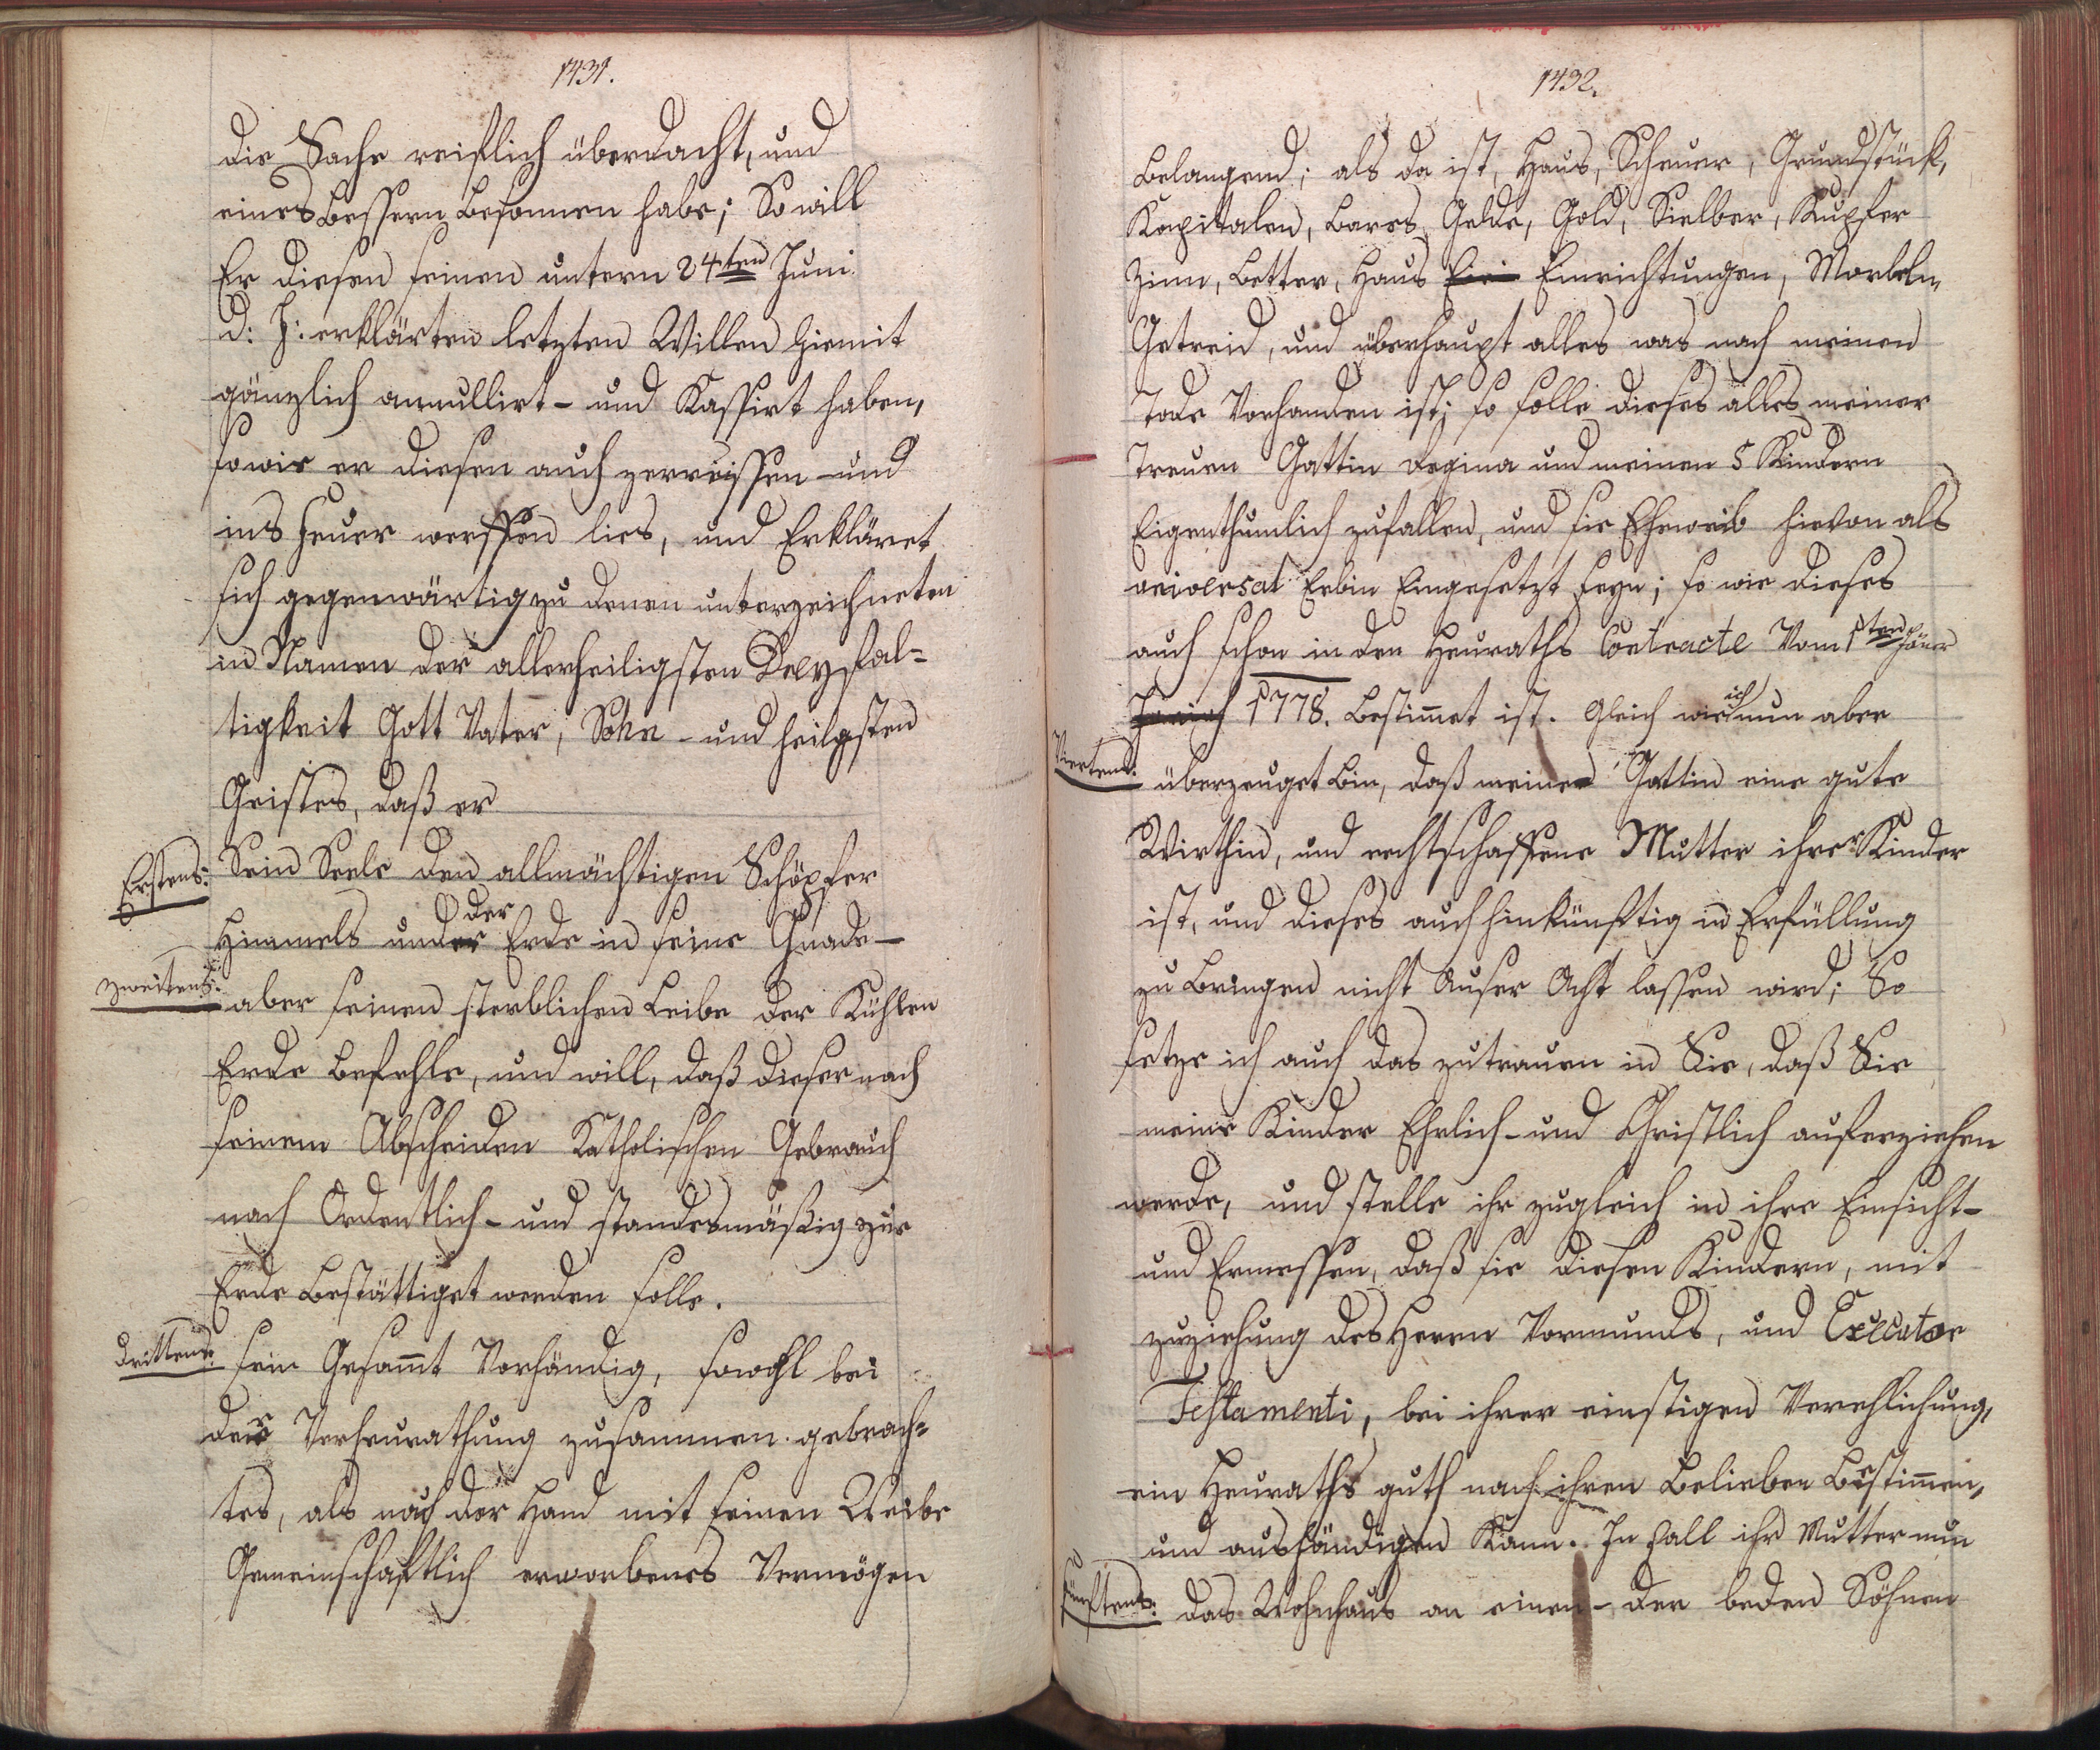 1431.
die Sache reiflich überdacht, und
eines Bessern besonnen habe; So will
Er diesen seinen untern 24ten Juni
d: J: erklärten letzten Willen hiemit
gänzlich annullirt- und Kassirt haben,
sowie er diesen auch zerreissen und
ins Feuer werffen lies, und Erkläret
sich gegenwärtig zu denen unterzeichneten
in Namen der allerheiligsten Dreyfal-
tigkeit Gott Vater, Sohn- und heiligsten
Geistes, daß er
Erstens: Sein Seele den allmächtigen Schöpfer
Himmels und der Erde in seine Gnade-
zweitens: aber seinen sterblichen Leibe der Kühlen
Erde Befehle, und will, daß dieser nach
seinem Abscheiden Katholischen Gebrauch
nach Ordentlich- und standesmäßig zur
Erde Bestättiget werden solle.
drittens: sein Gesammt Vorhändig, sowohl bei
der Verheurathung zusammen gebrach-
tes, als nach der Hand mit seinen Weibe
Gemeinschaftlich erworbenes Vermögen
1432.
Belangend; als da ist, Haus, Scheuer, Grundstück,
Kapitalen, Bares Gelde, Gold, Sielber, Kupfer
Zinn, Better, Haus Einrichtungen, Moebeln,
Getreid, und überhaupt alles was nach meinen
Tode Vorhanden ist; so solle dieses alles meiner
Treuen Gattin Regina und meinen 5 Kindern
Eigenthumlich zufallen, und sie Eheweib hievon als
universal Erbin Eingesetzt seyn; so wie dieses
auch schon in den Heuraths Contracte Vom 1ten Jäner
1778. Bestimmet ist. Gleich wie ich nun aber
Viertens: überzeuget Bin, daß meine Gattin eine gute
Wirthin, und rechtschaffene Mutter ihrer Kinder
ist, und dieses auch hinkünftig in Erfüllung
zu Bringen nicht Auser Acht lassen wird; So
setze ich auch das zutrauen in Sie, daß Sie
meine Kinder Ehrlich- und Christlich auferziehen
werde, und stelle ihr zugleich in ihre Einsicht-
und Ermessen, daß sie diesen Kindern, mit
zuziehung des Herrn Vormunds, und Executor
Testamenti, bei ihrer einstigen Verehlichung,
ein Heuraths guth nach ihren Belieben Bestimmen,
und aushändigen Kann. In Fall ihr Mutter nun
fünftens: das Wohnhaus an einen- der beden Söhnen